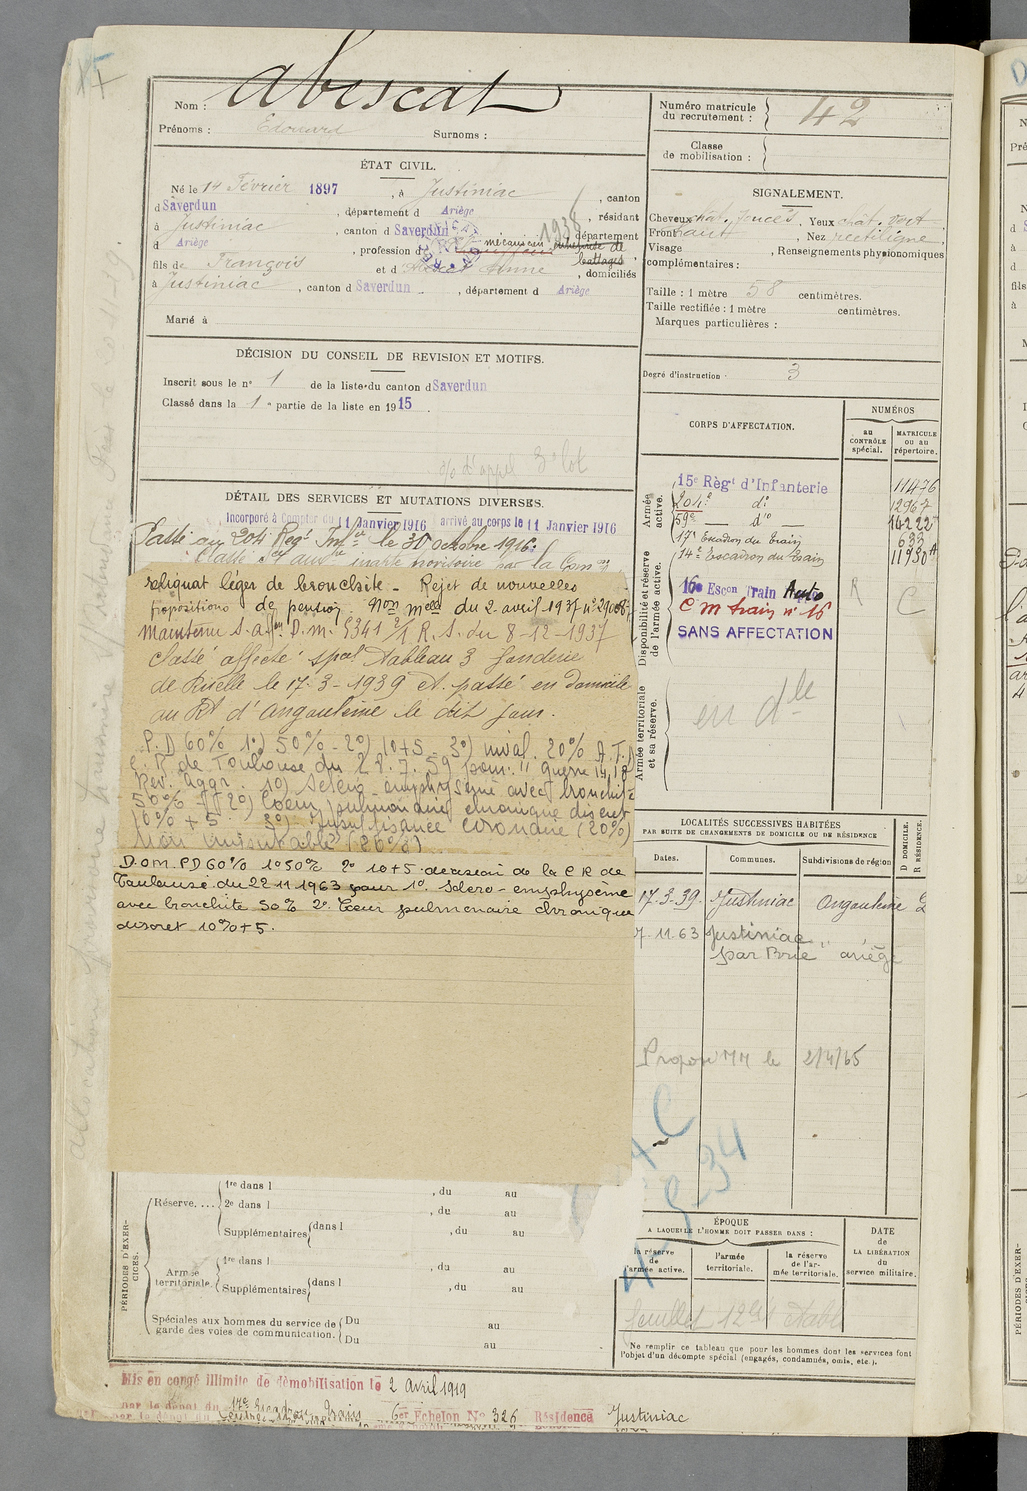 Nom : Abescat
Prénoms : Edouard Surnoms :
Numéro matricule du recrutement : 42
Classe de mobilisation :
ÉTAT CIVIL.
Né le 14 Février 1897, à Justiniac, canton
d Saverdun, département d Ariège, résidant
à Justiniac, canton d Saverdun, département
d Ariège, profession d mécanicien entreprise de battages
1938
fils de François et d Anne, domiciliés
à Justiniac, canton d Saverdun, département d Ariège
Marié à
SIGNALEMENT.
Cheveux chât. foncés, Yeux chât. vert
Front haut, Nez rectiligne
Visage, Renseignements physionomiques
complémentaires :
Taille : 1 mètre 58 centimètres.
Taille rectifiée : 1 mètre centimètres.
Marques particulières :
Degré d'instruction : 3
DÉCISION DU CONSEIL DE REVISION ET MOTIFS.
Inscrit sous le n° 1 de la liste du canton d Saverdun
Classé dans la 1e partie de la liste en 1915.
d'appel 3e lot
DÉTAIL DES SERVICES ET MUTATIONS DIVERSES.
Incorporé à Compter du 11 Janvier 1916 arrivé au corps le 11 Janvier 1916
Passé au 204 Regt Infie le 30 octobre 1916.
reliquat léger de bronchite. Rejet de nouvelles
propositions de pension. Non du 2 avril 1937 n° 29008
Maintenu S. D.M. 5341 2/1 R.S. du 8-12-1937
Classé affecté spal Tableau 3 fonderie
de Ruelle le 17-3-1939 et passé en domicile
au Rt d'Angoulême le dit jour.
P.D 60% 1°) 50% - 2°) 10+5 - 3°) inval. 20% A.T.)
C.R. de Toulouse du 28.7.59 pour: "guerre 14/18
Rev. Aggr. 1°) Scléro-emphysème avec bronchite
50% 2°) Coeur pulmonaire chronique discret
10% + 5 3°) Insuffisance coronaire (20%)
Non imputable (20%)
D.O.M. PD 60% 1° 50% 2° 10+5 décision de la C R de
Toulouse du 22 11 1963 pour 1° Scléro-emphysème
avec bronchite 50% 2° Coeur pulmonaire chronique
discret 10%+5.
CORPS D'AFFECTATION.
NUMÉROS
au CONTRÔLE spécial.
MATRICULE OU au répertoire.
Armée active.
15e Règt d'Infanterie 11476
204e do 12967
59e do 14222
17e Escadron du Train 633
14e Escadron du Train 11930
Disponibilité et réserve de l'armée active.
16e Escon Train Auto R C
C m train n° 16
SANS AFFECTATION
Armée territoriale et sa réserve.
en dlle
LOCALITÉS SUCCESSIVES HABITÉES
PAR SUITE DE CHANGEMENTS DE DOMICILE OU DE RÉSIDENCE
Dates. Communes. Subdivisions de région
D DOMICILE. R RÉSIDENCE.
17-3-39. Justiniac Angoulême D
7-11-63 Justiniac par Brie ariège
Proposé MM le 2/4/65
PÉRIODES D'EXERCICES.
Réserve.... 1re dans l , du au
2e dans l , du au
Supplémentaires dans l , du au
Armée territoriale. 1re dans l , du au
Supplémentaires dans l , du au
Spéciales aux hommes du service de garde des voies de communication. Du au
Du au
ÉPOQUE
A LAQUELLE L'HOMME DOIT PASSER DANS :
la réserve de l'armée active.
l'armée territoriale.
la réserve de l'armée territoriale.
DATE de LA LIBÉRATION du service militaire.
Ne remplir ce tableau que pour les hommes dont les services font l'objet d'un décompte spécial (engagés, condamnés, omis, etc.).
Mis en congé illimité de démobilisation le 2 Avril 1919
par le dépôt du 17e Escadron Train 6er Echelon N° 326 Résidence Justiniac